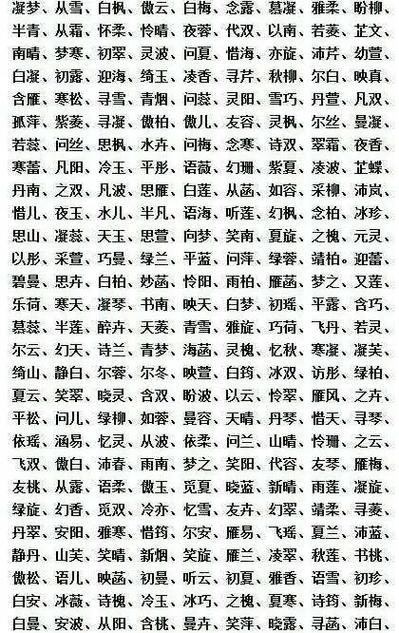 凝梦、从雪、白枫、傲云、白梅、念露、慕凝、雅柔、盼柳、
半青、从霜、怀柔、怜晴、夜蓉、代双、以南、若菱、芷文、
南晴、梦寒、初翠、灵波、问夏、惜海、亦旋、沛芹、幼萱、
白凝、初露、迎海、绮玉、凌香、寻芹、秋柳、尔白、映真、
含雁、寒松、寻雪、青烟、问蕊、灵阳、雪巧、丹萱、凡双、
孤萍、紫菱、寻凝、傲柏、傲儿、友容、灵枫、尔丝、曼凝、
若蕊、问丝、思枫、水卉、问梅、念寒、诗双、翠霜、夜香、
寒蕾、凡阳、冷玉、平彤、语薇、幻珊、紫夏、凌波、芷蝶、
丹南、之双、凡波、思雁、白莲、从菡、如容、采柳、沛岚、
惜儿、夜玉、水儿、半凡、语海、听莲、幻枫、念柏、冰珍、
思山、凝蕊、天玉、思萱、向梦、笑南、夏旋、之槐、元灵、
以彤、采萱、巧曼、绿兰、平蓝、问萍、绿蓉、靖柏。迎蕾、
碧曼、思卉、白柏、妙菡、怜阳、雨柏、雁菡、梦之、又莲、
乐荷、寒天、凝琴、书南、映天、白梦、初瑶、平露、含巧、
慕蕊、半莲、醉卉、天菱、青雪、雅旋、巧荷、飞丹、若灵、
尔云、幻天、诗兰、青梦、海菡、灵槐、忆秋、寒凝、凝芙、
绮山、静白、尔蓉、尔冬、映萱、白筠、冰双、访彤、绿柏、
夏云、笑翠、晓灵、含双、盼波、以云、怜翠、雁风、之卉、
平松、问儿、绿柳、如蓉、曼容、天晴、丹琴、惜天、寻琴、
依瑶、涵易、忆灵、从波、依柔、问兰、山晴、怜珊、之云、
飞双、傲白、沛春、雨南、梦之、笑阳、代容、友琴、雁梅、
友桃、从露、语柔、傲玉、觅夏、晓蓝、新晴、雨莲、凝旋、
绿旋、幻香、觅双、冷亦、忆雪、友卉、幻翠、靖柔、寻菱、
丹翠、安阳、雅寒、惜筠、尔安、雁易、飞瑶、夏兰、沛蓝、
静丹、山芙、笑晴、新烟、笑旋、雁兰、凌翠、秋莲、书桃、
傲松、语儿、映菡、初曼、听云、初夏、雅香、语雪、初珍、
白安、冰薇、诗槐、冷玉、冰巧、之槐、夏寒、诗筠、新梅、
白曼、安波、从阳、含桃、曼卉、笑萍、晓露、寻菡、沛白、